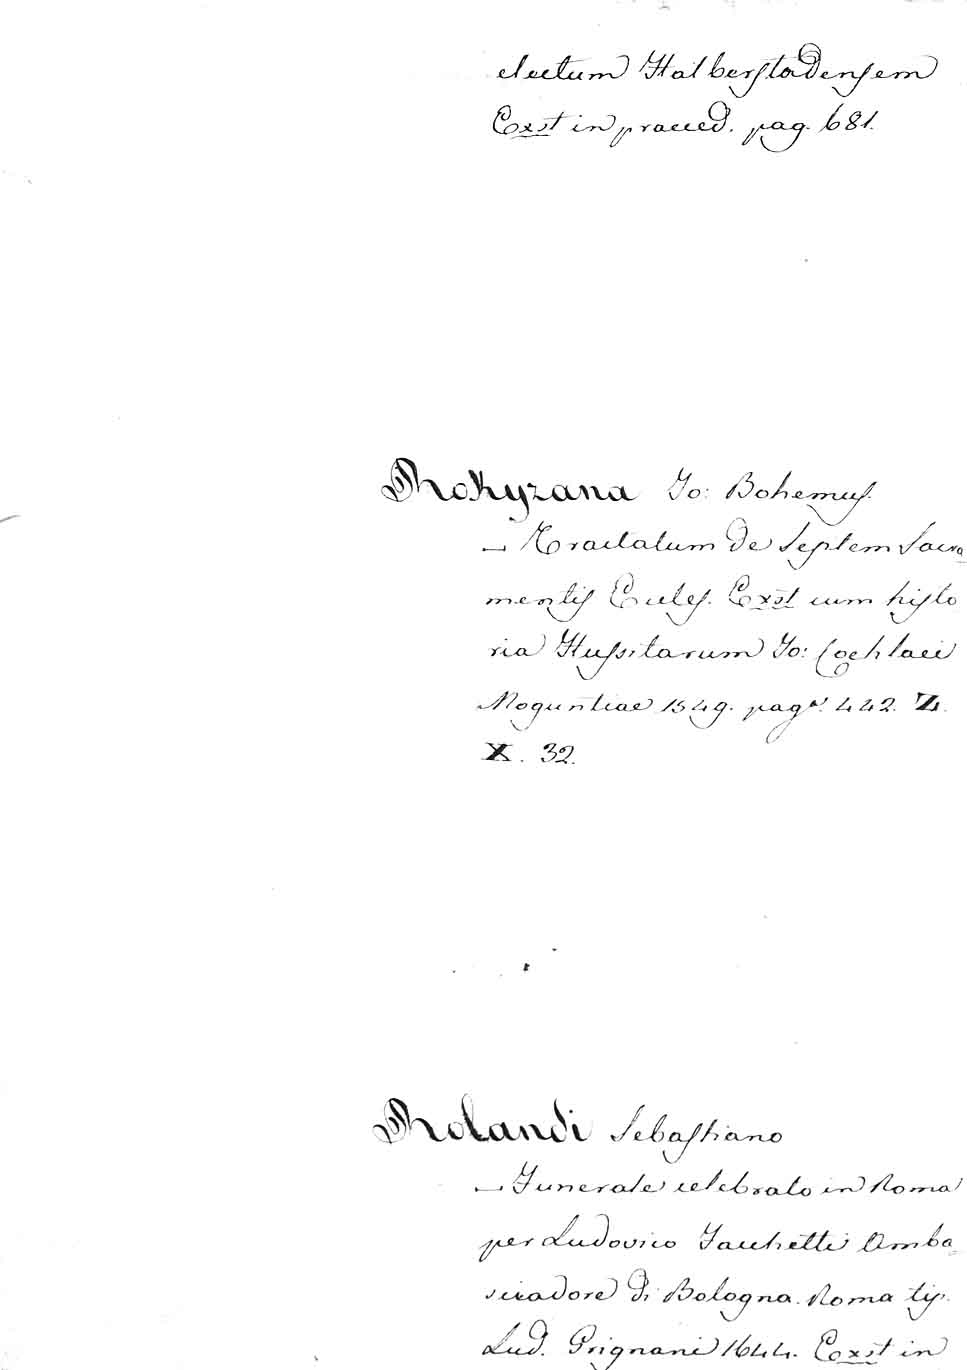 electum Halberstadensem
Exst in praeced. pag. 681.
Rokyzana Jo: Bohemus.
— Tractatum de Septem Sacra
mentis Eccles. Exst cum histo
ria Hussitarum Jo: Cochlaei
Moguntiae 1549. pag. 442. Z.
X. 32.
Rolandi Sebastiano
— Funerale celebrato in Roma
per Ludovico Facchetti Amba
sciadore di Bologna. Roma typ.
Lud. Grignani 1644. Exst in